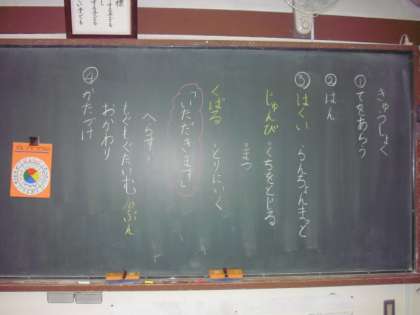 きゅうしょく
①てをあらう
②はん
③はくい らんちょんまっと
じゅんび ・くちをとじる
・まつ
くばる ・とりにいく
「いただきます」
へらす
もぐもぐたいむ 10ぷん
おかわり
④かたづけ